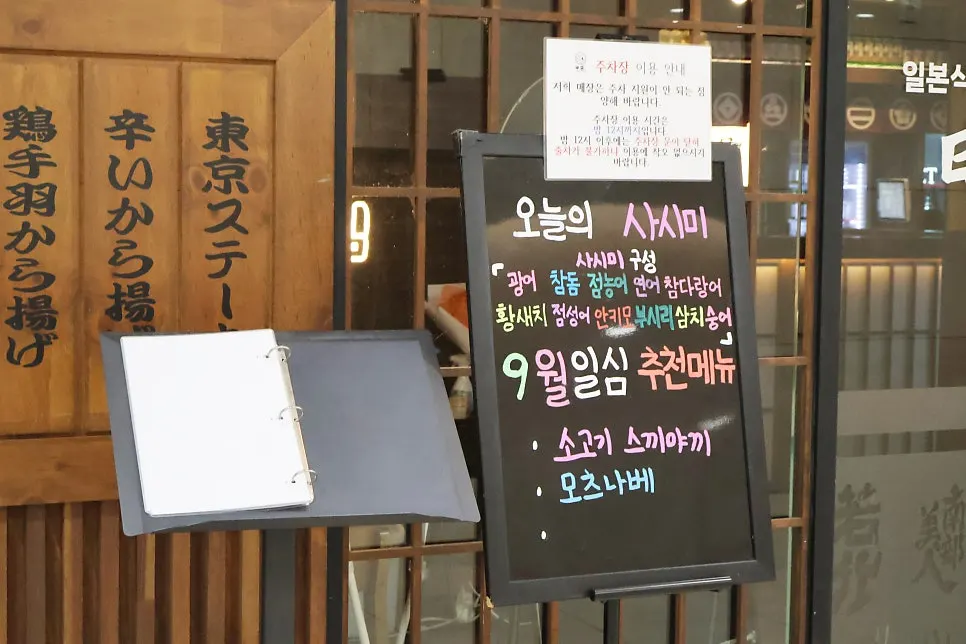 鶏手羽から揚げ
辛いから揚げ
東京ステー
주차장 이용 안내
저희 매장은 주차 지원이 안 되는 점
양해 바랍니다.
주차장 이용 시간은
밤 12시까지입니다.
밤 12시 이후에는 주차장 문이 닫혀
출차가 불가하니 이용에 착오 없으시기
바랍니다.
오늘의 사시미
사시미 구성
「광어 참돔 점농어 연어 참다랑어
황새치 점성어 안키모 부시리 삼치 숭어」
9월 일심 추천메뉴
· 소고기 스끼야끼
· 모츠나베
·
일본식